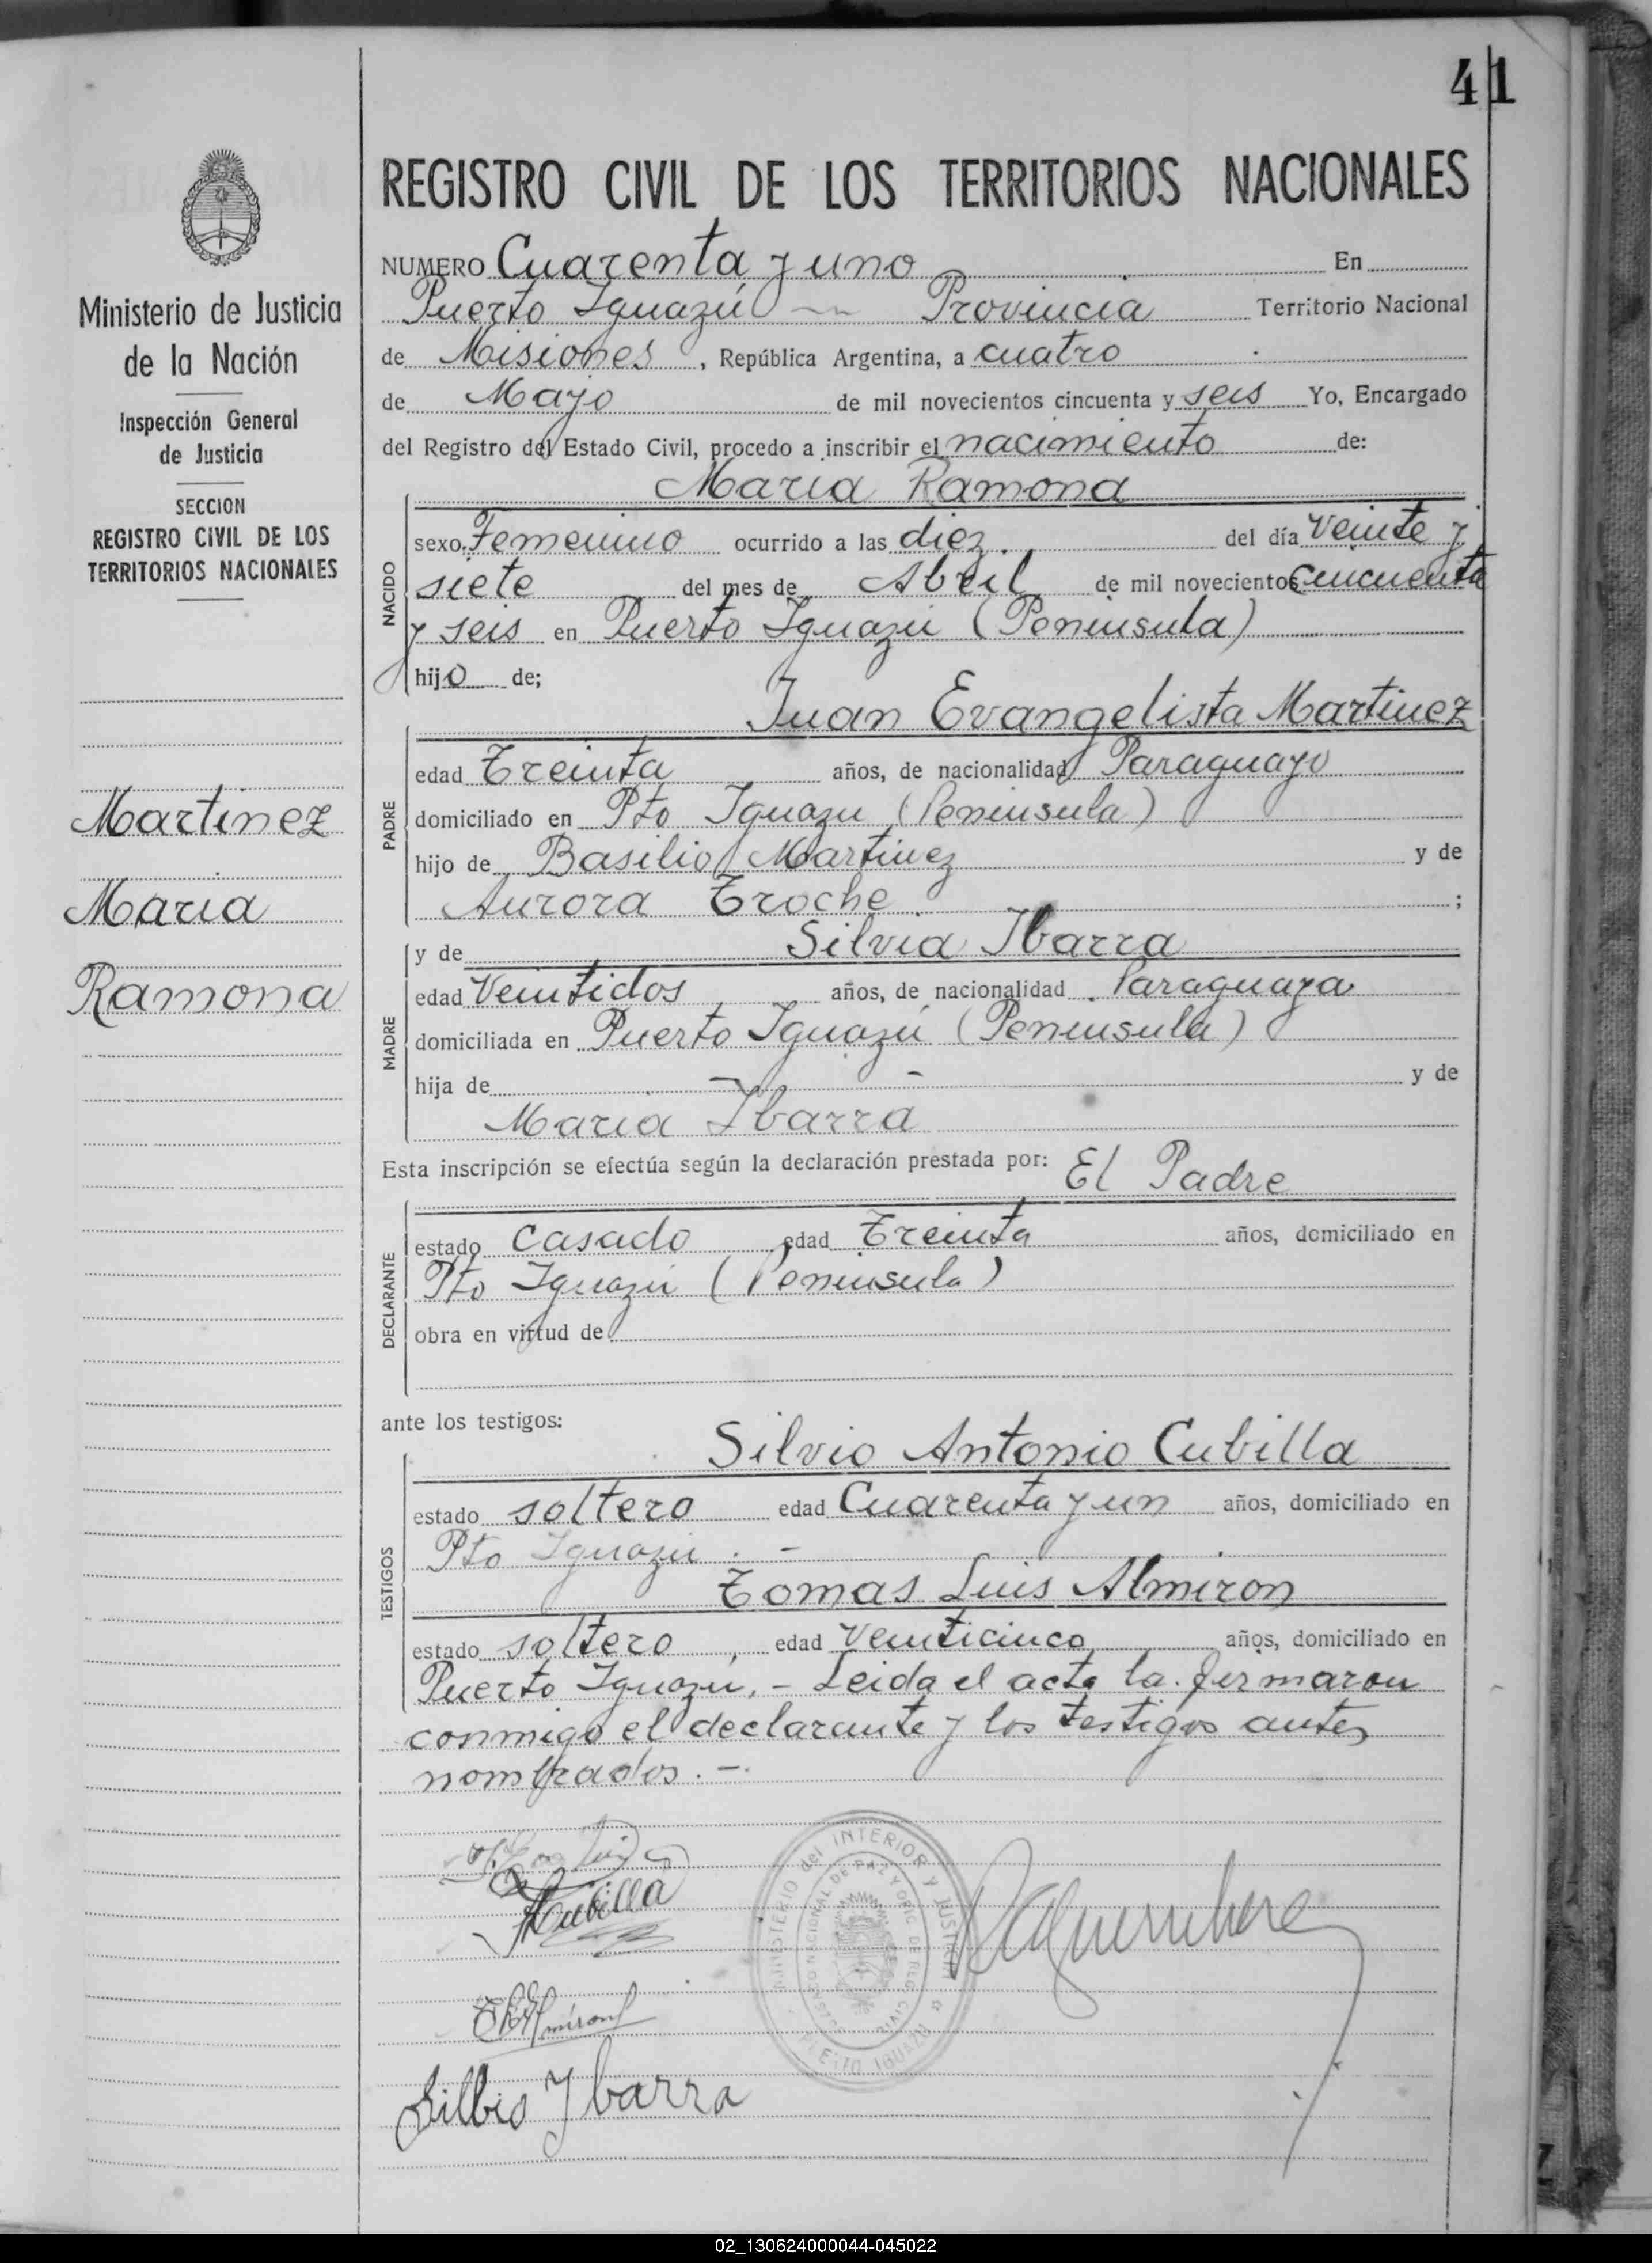 41
REGISTRO CIVIL DE LOS TERRITORIOS NACIONALES
NUMERO Cuarenta y uno En
Puerto Iguazú Provincia Territorio Nacional
de Misiones, República Argentina, a cuatro
de Mayo de mil novecientos cincuenta y seis Yo, Encargado
del Registro del Estado Civil, procedo a inscribir el nacimiento de:
Maria Ramona
NACIDO
sexo Femenino ocurrido a las diez del día veinte y
siete del mes de Abril de mil novecientos cincuenta
y seis en Puerto Iguazú (Peninsula)
hijo de;
Juan Evangelista Martinez
PADRE
edad Treinta años, de nacionalidad Paraguayo
domiciliado en Pto Iguazu (Peninsula)
hijo de Basilio Martinez y de
Aurora Troche ;
y de Silvia Ibarra
MADRE
edad Veintidos años, de nacionalidad Paraguaya
domiciliada en Puerto Iguazú (Peninsula)
hija de - - y de
Maria Ibarra
Esta inscripción se efectúa según la declaración prestada por: El Padre
DECLARANTE
estado Casado edad Treinta años, domiciliado en
Pto Iguazú (Peninsula)
obra en virtud de
ante los testigos:
Silvio Antonio Cubilla
TESTIGOS
estado soltero edad Cuarenta y un años, domiciliado en
Pto Iguazú . -
Tomas Luis Almiron
estado soltero, edad Veinticinco años, domiciliado en
Puerto Iguazú. - Leida el acta la firmaron
conmigo el declarante y los testigos antes
nombrados. -
Cubilla
Almiron
Silbio Ybarra
MINISTERIO del INTERIOR Y JUSTICIA
PUERTO IGUAZU
Ministerio de Justicia
de la Nación
Inspección General
de Justicia
SECCION
REGISTRO CIVIL DE LOS
TERRITORIOS NACIONALES
Martinez
Maria
Ramona
02_130624000044-045022